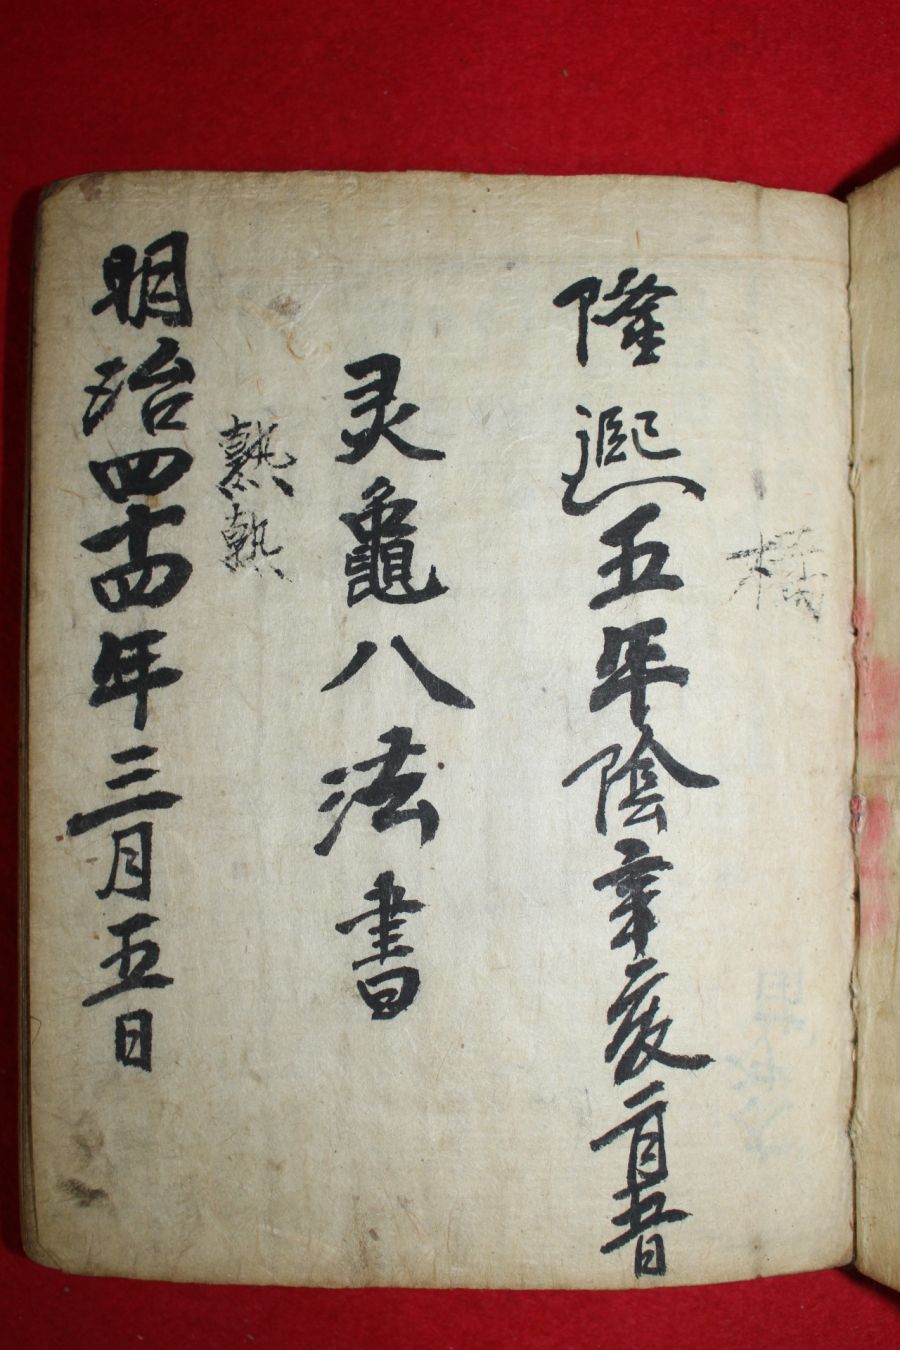 隆熙五年陰辛亥二月五日
灵龜八法書
明治四十四年三月五日